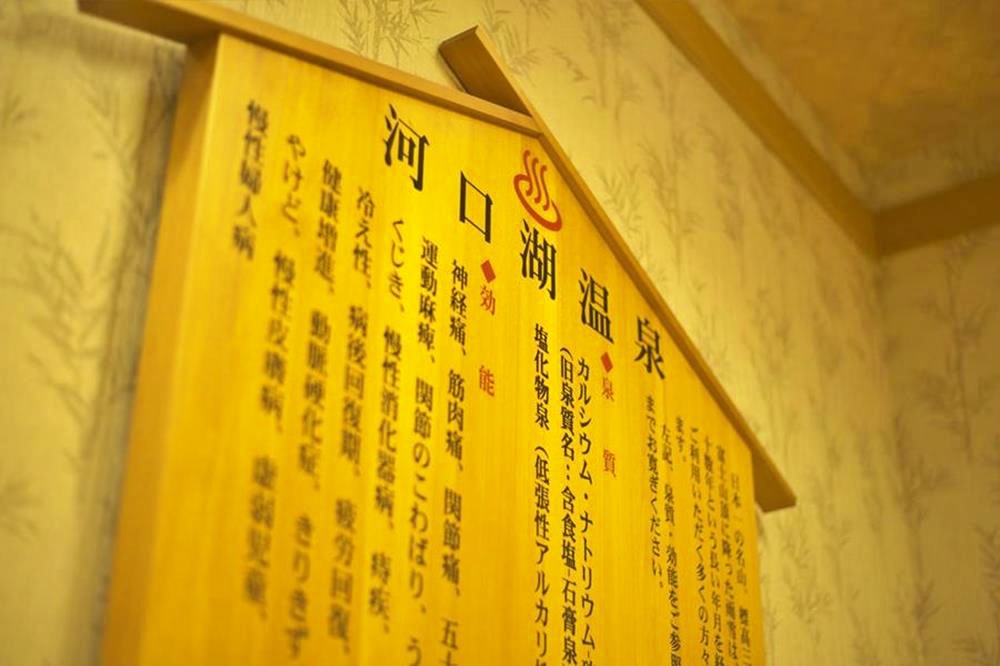 河口湖温泉
日本一の名山、標高三
富士山頂に降った雨雪は
十数年という長い年月を経
ご利用いただく多くの方々
ます。
左記、泉質・効能をご参照
までお寛ぎください。
◆泉質
カルシウム・ナトリウム-
(旧泉質名：含食塩-石膏泉
塩化物泉 (低張性アルカリ
◆効能
神経痛、筋肉痛、関節痛、五十
運動麻痺、関節のこわばり、う
くじき、慢性消化器病、痔疾、
冷え性、病後回復期、疲労回復、
健康増進、動脈硬化症、きりきず
やけど、慢性皮膚病、虚弱児童、
慢性婦人病